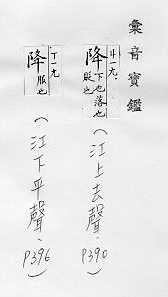 彙音寶鑑
卄一九、
降 下也落也貶也
(江上去聲、P390)
丁一九
降 服也
(江下平聲、P396)